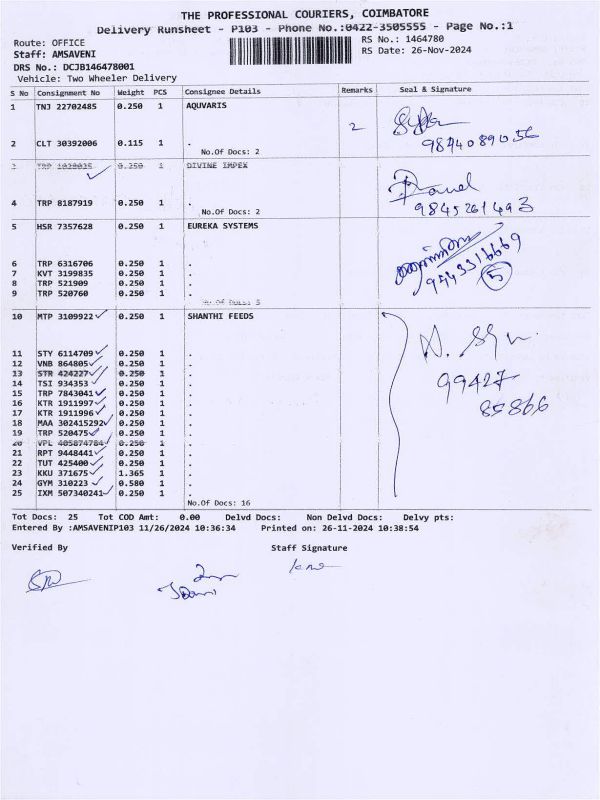 THE PROFESSIONAL COURIERS, COIMBATORE
Delivery Runsheet - P103 - Phone No.:0422-3505555 - Page No.:1
Route: OFFICE
RS No.: 1464780
Staff: AMSAVENI
RS Date: 26-Nov-2024
DRS No.: DCJB146478001
Vehicle: Two Wheeler Delivery
S No Consignment No Weight PCS Consignee Details Remarks Seal & Signature
1 TNJ 22702485 0.250 1 AQUVARIS
2
2 CLT 30392006 0.115 1 .
9844089056
No.Of Docs: 2
3 TRP 1028035 0.250 1 DIVINE IMPEX
4 TRP 8187919 0.250 1 .
9845261493
No.Of Docs: 2
5 HSR 7357628 0.250 1 EUREKA SYSTEMS
6 TRP 6316706 0.250 1 .
7 KVT 3199835 0.250 1 .
8 TRP 521909 0.250 1 .
9 TRP 520760 0.250 1 .
9443316669
5
No.Of Docs: 5
10 MTP 3109922 0.250 1 SHANTHI FEEDS
11 STY 6114709 0.250 1 .
12 VNB 864805 0.250 1 .
13 STR 424227 0.250 1 .
14 TSI 934353 0.250 1 .
15 TRP 7843041 0.250 1 .
16 KTR 1911997 0.250 1 .
17 KTR 1911996 0.250 1 .
18 MAA 302415292 0.250 1 .
19 TRP 520475 0.250 1 .
20 VPL 405874784 0.250 1 .
21 RPT 9448441 0.250 1 .
22 TUT 425400 0.250 1 .
23 KKU 371675 1.365 1 .
24 GYM 310223 0.580 1 .
25 IXM 507340241 0.250 1 .
99427
85866
No.Of Docs: 16
Tot Docs: 25 Tot COD Amt: 0.00 Delvd Docs: Non Delvd Docs: Delvy pts:
Entered By :AMSAVENIP103 11/26/2024 10:36:34 Printed on: 26-11-2024 10:38:54
Verified By Staff Signature